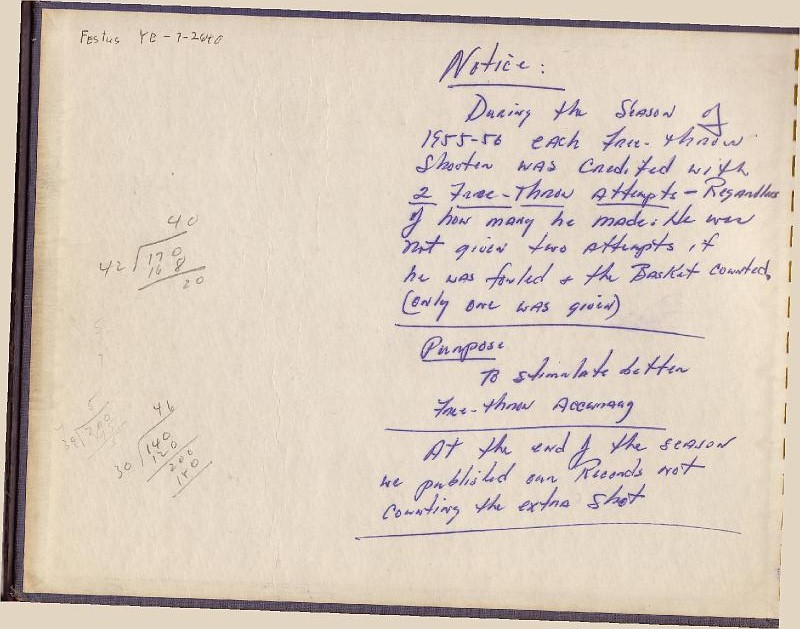 Festus YE-7-2640
Notice:
During the Season of
1955-56 each free-throw
Shooter was credited with
2 Free-Throw Attempts - Regardless
of how many he made. He was
not given two attempts if
he was fouled & the Basket counted.
(only one was given)
Purpose
To stimulate better
Free-throw Accuracy
At the end of the season
we published our Records not
counting the extra shot
40
42 170
16 8
20
46
30 140
120
200
180